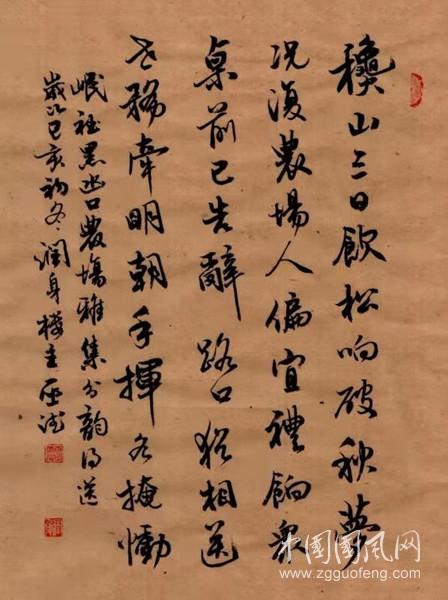 穳山三日飲松响破秋夢
况復農場人偏宜禮餉衆
桌前已告辭路口猶相送
世務牽明朝手揮各掩慟
岷社黑凼口農場雅集分韵得送
歲次己亥初冬潤身樓主
中国国风网
www.zgguofeng.com